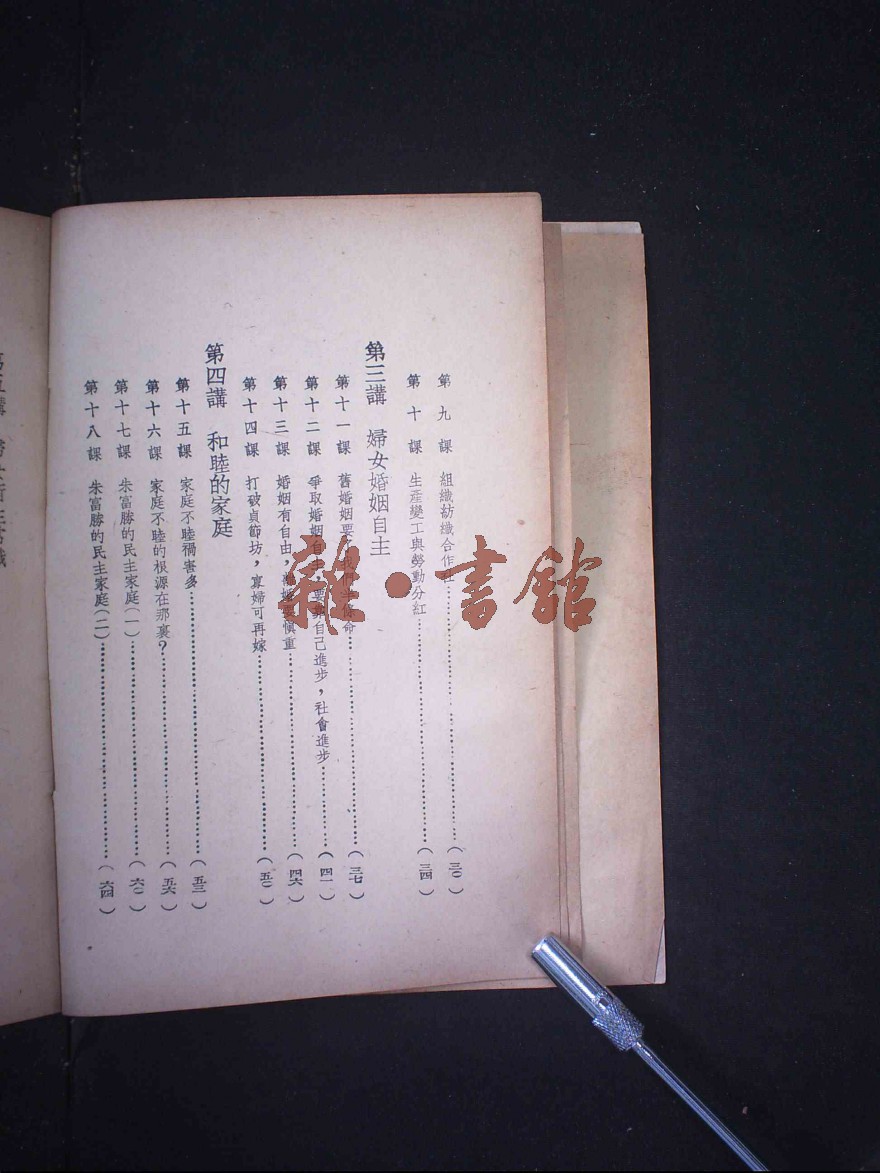 第九課 組織紡織合作社……(三〇)
第十課 生產變工與勞動分紅……(三四)
第三講 婦女婚姻自主
第十一課 舊婚姻要……命……(三七)
第十二課 爭取婚姻自主，要靠自己進步，社會進步……(四一)
第十三課 婚姻有自由，離婚要慎重……(四六)
第十四課 打破貞節坊，寡婦可再嫁……(五〇)
第四講 和睦的家庭
第十五課 家庭不睦禍害多……(五三)
第十六課 家庭不睦的根源在那裏？……(五六)
第十七課 朱富勝的民主家庭(一)……(六〇)
第十八課 朱富勝的民主家庭(二)……(六四)
雜·書館